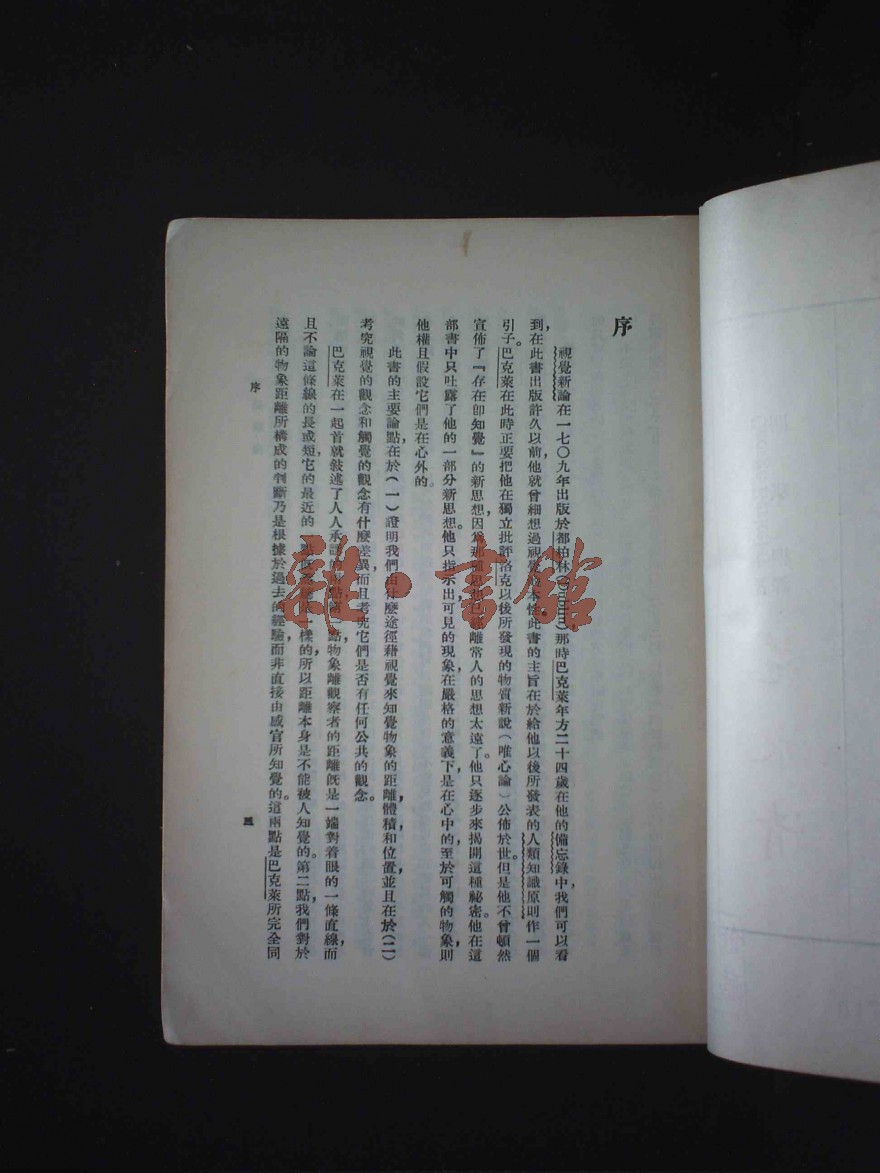 序
視覺新論在一七〇九年出版於都柏林那時巴克萊年方二十四歲在他的備忘錄中我們可以看
到，在此書出版許久以前，他就曾細想過視覺的本性。此書的主旨在於給他以後所發表的人類知識原則作一個
引子。巴克萊在此時正要把他在獨立批評洛克以後所發現的物質新說（唯心論）公佈於世。但是他不曾頓然
宣佈了『存在即知覺』的新思想，因為那種思想距離常人的思想太遠了。他只逐步來揭開這種秘密。他在這
部書中只吐露了他的一部分新思想。他只指示出可見的現象在嚴格的意義下，是在心中的，至於可觸的物象，則
他權且假設它們是在心外的。
此書的主要論點在於（一）證明我們由什麼途徑藉視覺來知覺物象的距離，體積和位置，並且在於（二）
考究視覺的觀念和觸覺的觀念有什麼差異，而且考究它們是否有任何公共的觀念。
巴克萊在一起首就敍述了人人承認的兩點。第一點，物象離觀察者的距離既是一端對着眼的一條直線，而
且不論這條線的長或短，它的最近的一點總是一樣的，所以距離本身是不能被人知覺的。第二點，我們對於
遠隔的物象距離所構成的判斷乃是根據於過去的經驗，而非直接由感官所知覺的。這兩點是巴克萊所完全同
序
三
雜·書館